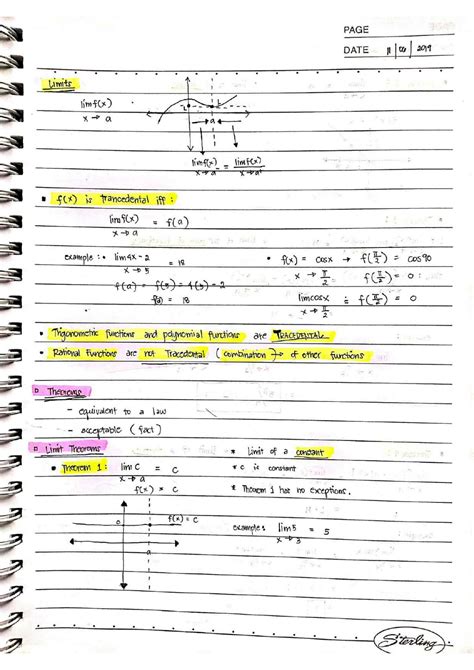 PAGE
DATE 2019
Limits
lim f(x)
x → a
L
a
lim f(x) = lim f(x)
x → a⁻ x → a⁺
• f(x) is trancedental iff :
lim f(x) = f(a)
x → a
example : • lim 4x - 2 = 18
x → 5
f(a) = f(5) = 4(5) - 2
f(a) = 18
• f(x) = cosx → f(π/2) = cos90
x → π/2 f(π/2) = 0
lim cosx = f(π/2) = 0
x → π/2
• Trigonometric functions and polynomial functions are TRACEDENTAL
• Rational functions are not Tracedental (combination) → of other functions
Theorems
- equivalent to a law
- acceptable (fact)
Limit Theorems
• Theorem 1 : lim C = C
x → a
f(x) = C
* Limit of a constant
* c is constant
* Theorem 1 has no exceptions.
c
f(x) = C
a
example : lim 5 = 5
x → 3
Sterling